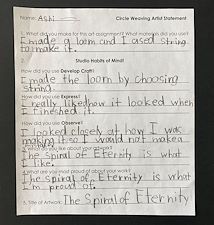 Name: ASH Circle Weaving Artist Statement
1. What did you make for this art assignment? What materials did you use?
I made a loom and I used string
to make it.
2. Studio Habits of Mind!
How did you use Develop Craft?
I made the loom by choosing
string.
How did you use Express?
I really liked how it looked when
I fineshed it.
How did you use Observe?
I looked closely at how I was
making it so I would not make a
you like about your artwork?
The spiral of Eternity is what
I like.
4. What are you most proud of about your work?
The spiral of Eternity is what
I'm proud of.
5. Title of Artwork: The Spiral of Eternity